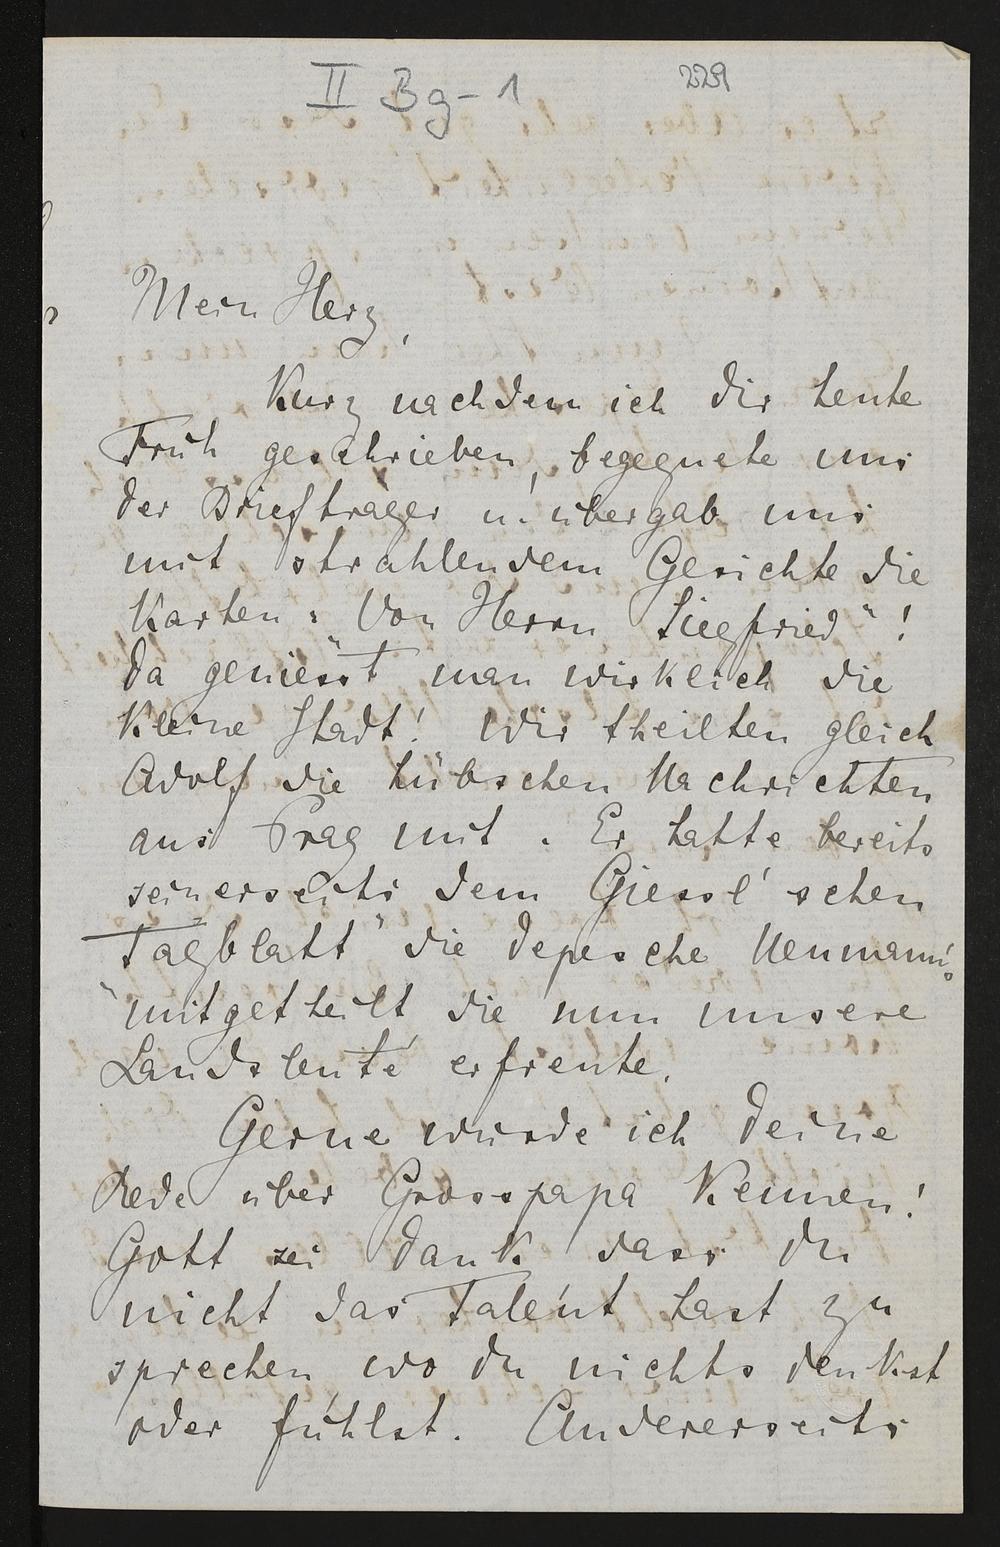 II Bg-1
229
Mein Herz,
Kurz nachdem ich dir heute
Früh geschrieben, begegnete uns
der Briefträger u. übergab uns
mit strahlendem Gesichte die
Karten: Von Herrn "Siegfried"!
Da geniesst man wirklich die
kleine Stadt! Wir theilten gleich
Adolf die hübschen Nachrichten
aus Prag mit. Er hatte bereits
seinerseits dem Giessl'schen
"Tagblatt" die Depesche Neumann's
mitgetheilt die nun unsere
Landsleute erfreute.
Gerne würde ich deine
Rede über Grosspapa kennen!
Gott sei Dank dass du
nicht das Talent hast zu
sprechen wo du nichts denkst
oder fühlst. Andererseits